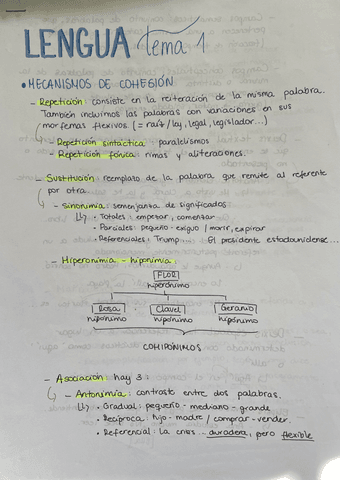 LENGUA tema 1
• MECANISMOS DE COHESIÓN
- Repetición: consiste en la reiteración de la misma palabra.
También incluimos las palabras con variaciones en sus
morfemas flexivos. (= raíz / ley, legal, legislador...)
- Repetición sintáctica: paralelismos
- Repetición fónica: rimas y aliteraciones.
- Sustitución: reemplazo de la palabra que remite al referente
por otra.
- Sinonimia: semenjanza de significados.
• Totales: empezar, comenzar
• Parciales: pequeño - exiguo / morir, expirar
• Referenciales: Trump.... El presidente estadounidense...
- Hiperonimia - hiponimia:
FLOR
hiperónimo
Rosa Clavel Geranio
hipónimo hipónimo hipónimo
COHIPÓNIMOS
- Asociación: hay 3:
- Antonimia: contraste entre dos palabras.
• Gradual: pequeño - mediano - grande
• Recíproca: hijo - madre / comprar - vender.
• Referencial: La crisis ... duradera, pero flexible